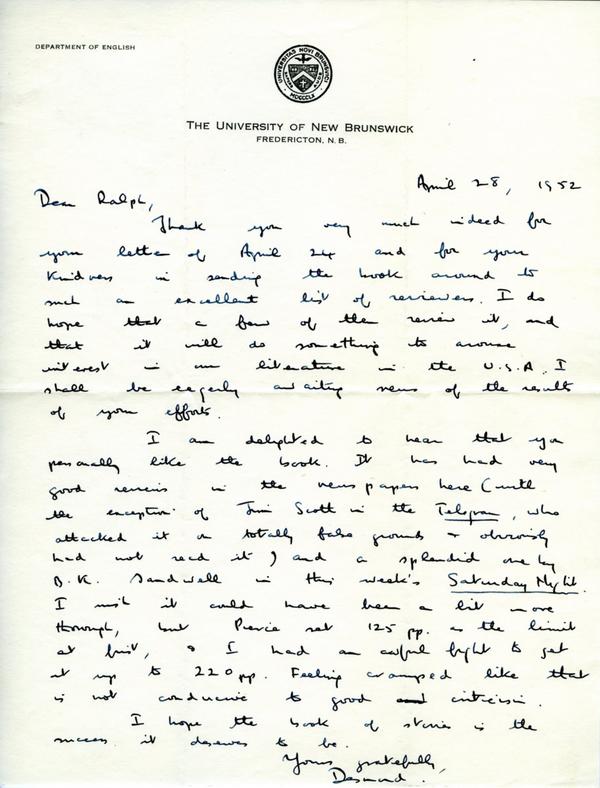 DEPARTMENT OF ENGLISH
UNIVERSITAS NOVI BRUNSVICI
MDCCCLX
THE UNIVERSITY OF NEW BRUNSWICK
FREDERICTON, N. B.
April 28, 1952
Dear Ralph,
Thank you very much indeed for
your letter of April 24 and for your
kindness in sending the book around to
such an excellent list of reviewers. I do
hope that a few of them review it, and
that it will do something to arouse
interest in our literature in the U.S.A. I
shall be eagerly awaiting news of the results
of your efforts.
I am delighted to hear that you
personally like the book. It has had very
good reviews in the newspapers here (with
the exception of Jim Scott in the Telegram, who
attacked it on totally false grounds & obviously
had not read it) and a splendid one by
B.K. Sandwell in this week's Saturday Night.
I wish it could have been a bit more
thorough, but Pierce set 125 pp. as the limit
at first, & I had an awful fight to get
it up to 220 pp. Feeling cramped like that
is not conducive to good criticism.
I hope the book of stories is the
success it deserves to be.
Yours gratefully,
Desmond.